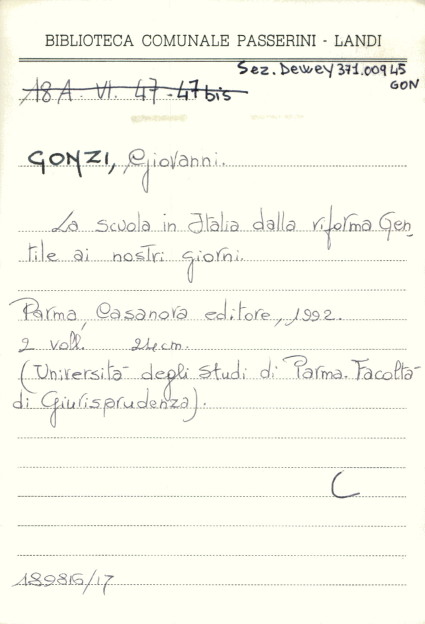 BIBLIOTECA COMUNALE PASSERINI - LANDI
Sez. Dewey 371.00945
GON
18A. VI. 47-47bis
GONZI, Giovanni.
La scuola in Italia dalla riforma Gen
tile ai nostri giorni.
Parma, Casanova editore, 1992.
2 voll. 24cm.
(Università degli studi di Parma. Facoltà
di Giurisprudenza).
C